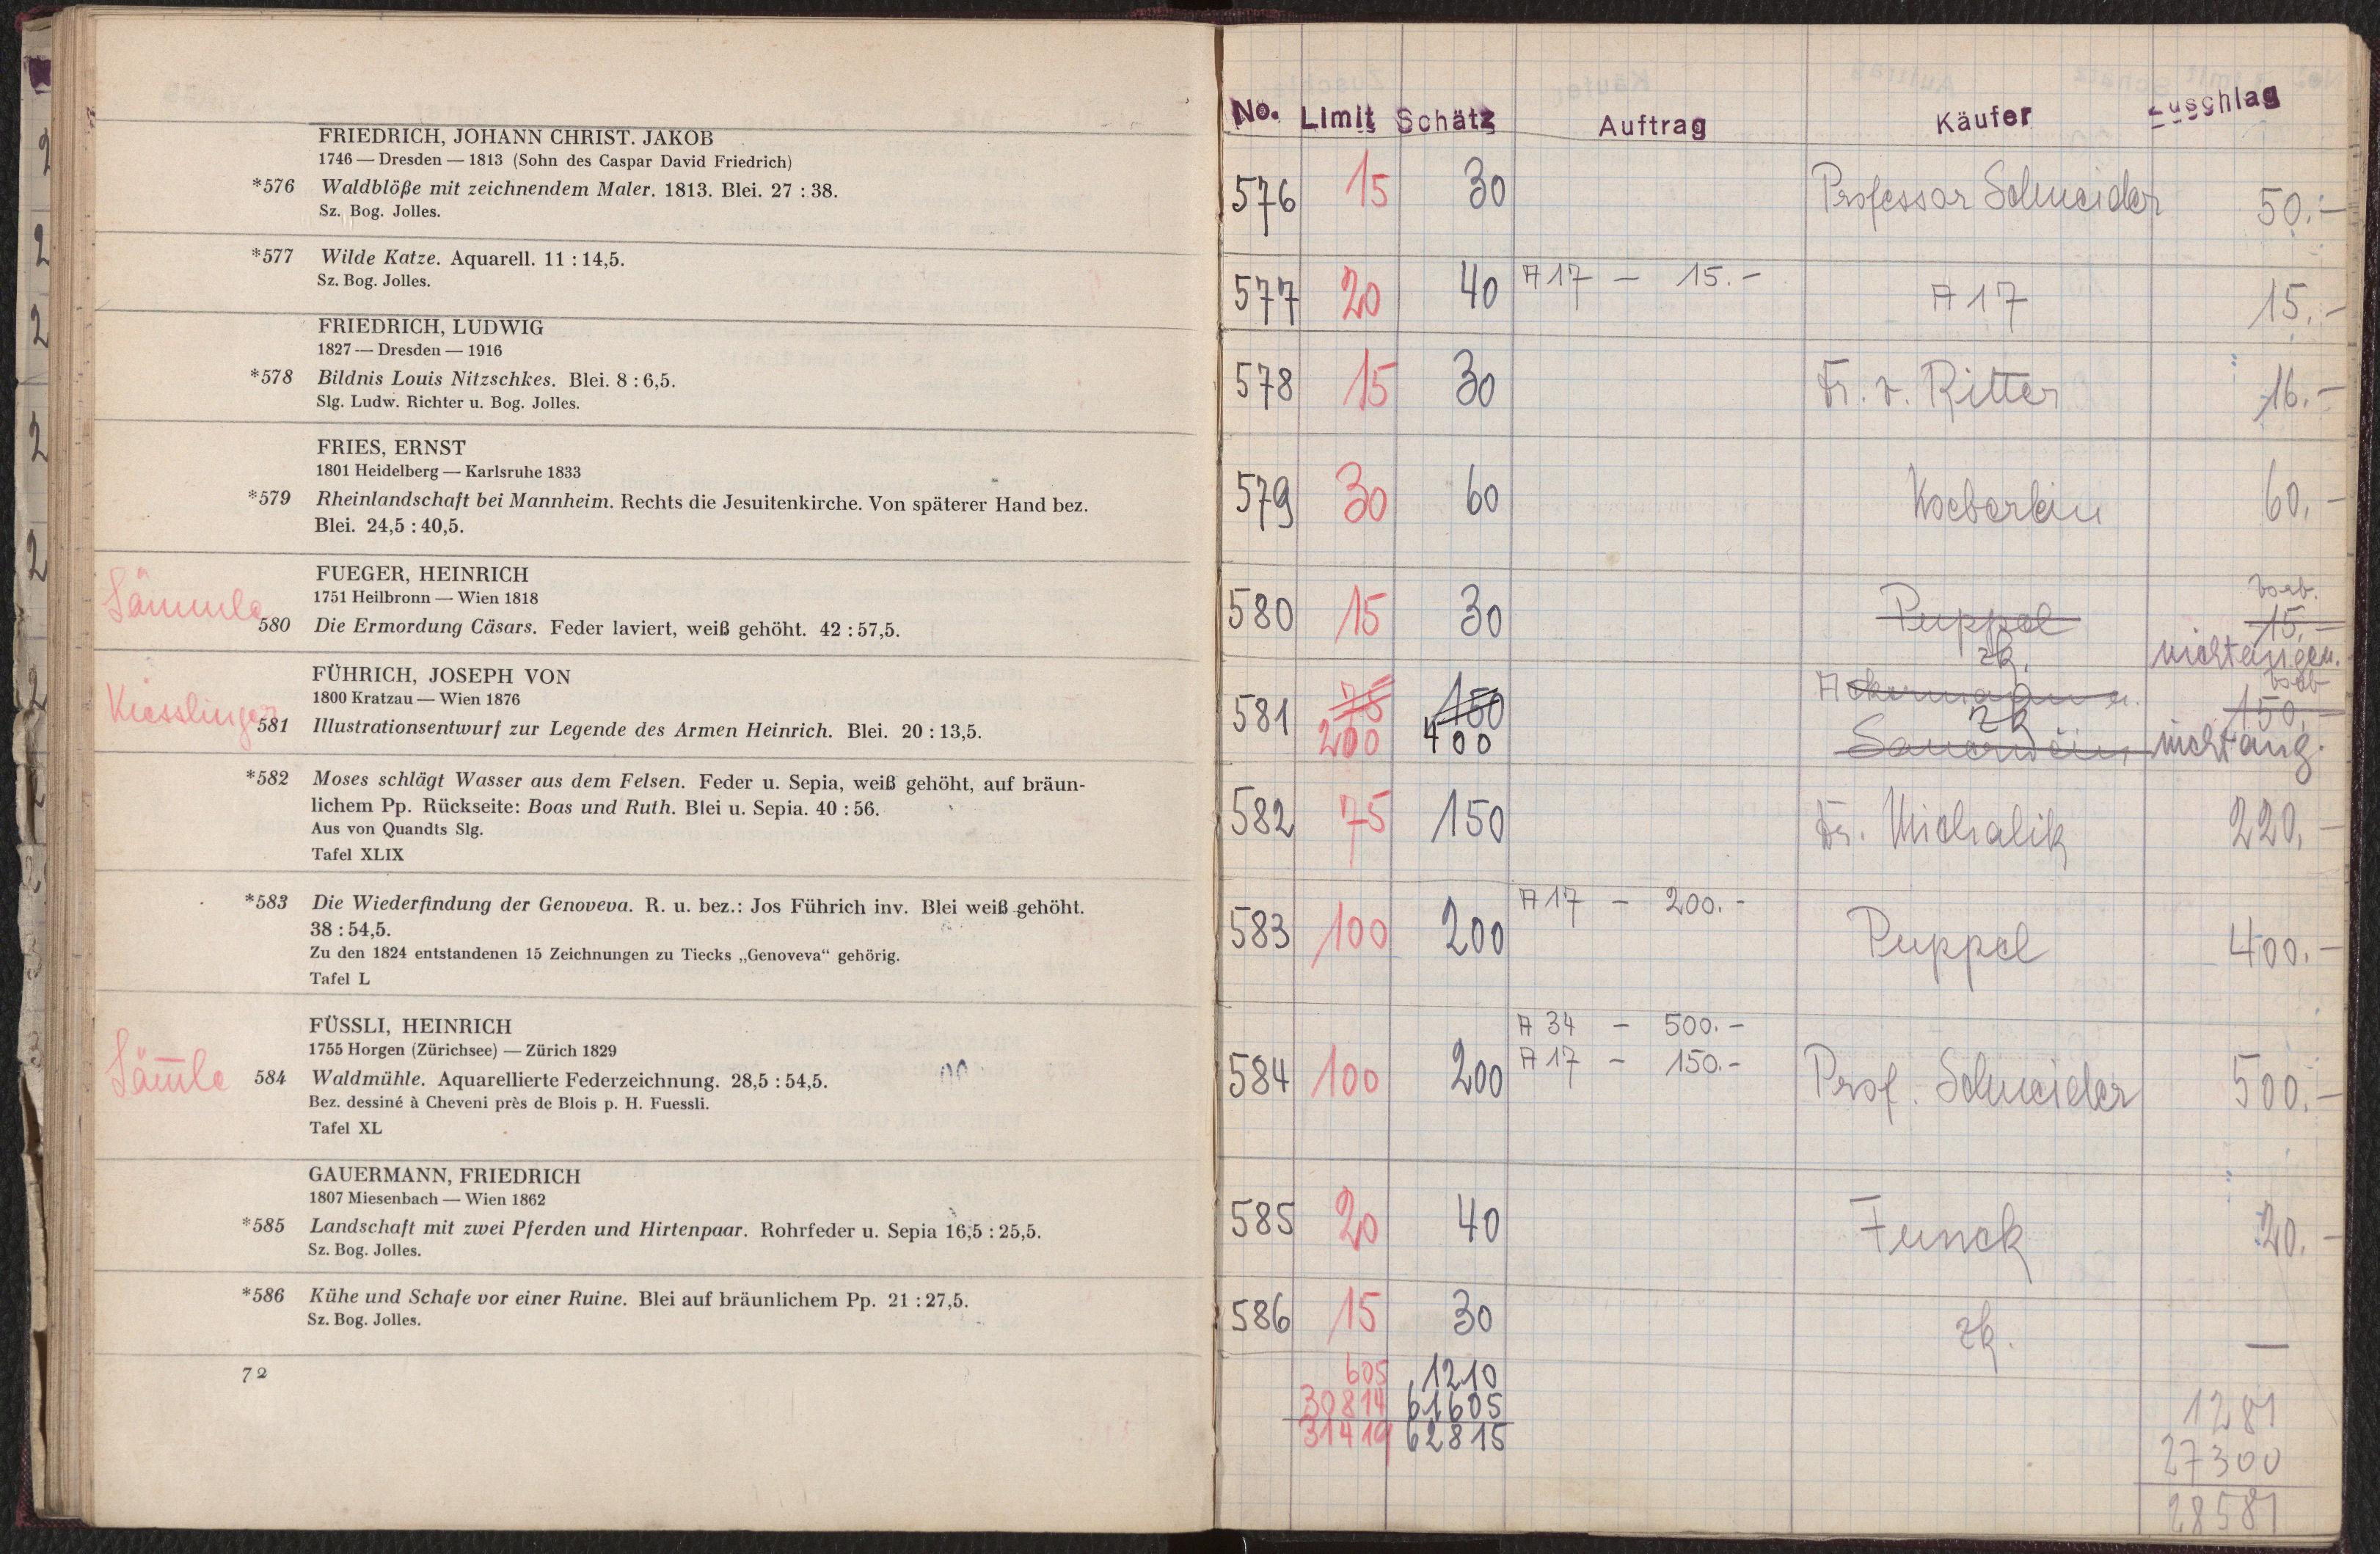 FRIEDRICH, JOHANN CHRIST. JAKOB
1746 — Dresden — 1813 (Sohn des Caspar David Friedrich)
*576 Waldblöße mit zeichnendem Maler. 1813. Blei. 27 : 38.
Sz. Bog. Jolles.
*577 Wilde Katze. Aquarell. 11 : 14,5.
Sz. Bog. Jolles.
FRIEDRICH, LUDWIG
1827 — Dresden — 1916
*578 Bildnis Louis Nitzschkes. Blei. 8 : 6,5.
Slg. Ludw. Richter u. Bog. Jolles.
FRIES, ERNST
1801 Heidelberg — Karlsruhe 1833
*579 Rheinlandschaft bei Mannheim. Rechts die Jesuitenkirche. Von späterer Hand bez.
Blei. 24,5 : 40,5.
FUEGER, HEINRICH
1751 Heilbronn — Wien 1818
Sämmle
580 Die Ermordung Cäsars. Feder laviert, weiß gehöht. 42 : 57,5.
FÜHRICH, JOSEPH VON
1800 Kratzau — Wien 1876
Kiesslinger
581 Illustrationsentwurf zur Legende des Armen Heinrich. Blei. 20 : 13,5.
*582 Moses schlägt Wasser aus dem Felsen. Feder u. Sepia, weiß gehöht, auf bräun-
lichem Pp. Rückseite: Boas und Ruth. Blei u. Sepia. 40 : 56.
Aus von Quandts Slg.
Tafel XLIX
*583 Die Wiederfindung der Genoveva. R. u. bez.: Jos Führich inv. Blei weiß gehöht.
38 : 54,5.
Zu den 1824 entstandenen 15 Zeichnungen zu Tiecks „Genoveva“ gehörig.
Tafel L
FÜSSLI, HEINRICH
1755 Horgen (Zürichsee) — Zürich 1829
Säm̅le 584 Waldmühle. Aquarellierte Federzeichnung. 28,5 : 54,5.
Bez. dessiné à Cheveni près de Blois p. H. Fuessli.
Tafel XL
GAUERMANN, FRIEDRICH
1807 Miesenbach — Wien 1862
*585 Landschaft mit zwei Pferden und Hirtenpaar. Rohrfeder u. Sepia 16,5 : 25,5.
Sz. Bog. Jolles.
*586 Kühe und Schafe vor einer Ruine. Blei auf bräunlichem Pp. 21 : 27,5.
Sz. Bog. Jolles.
72
No. Limit Schätz Auftrag Käufer Zuschlag
576 15 30 Professor Schneider 50.-
577 20 40 A 17 - 15.- A 17 15.-
578 15 30 Fr. v. Ritter 16.-
579 30 60 Koeberlin 60,-
vorb.
580 15 30 Puppel 15,-
zk. nicht angen.
75 150 Ackermann vorb
581 zk 150,-
200 400 Sauerwein nicht ang.
582 75 150 Dr. Michalik 220,-
583 100 200 A 17 - 200.- Puppel 400.-
A 34 - 500.-
584 100 200 A 17 - 150.- Prof. Schneider 500.-
585 20 40 Funck 20.-
586 15 30 zk. —
605 1210
30814 61605 1281
31419 62815 27300
28581